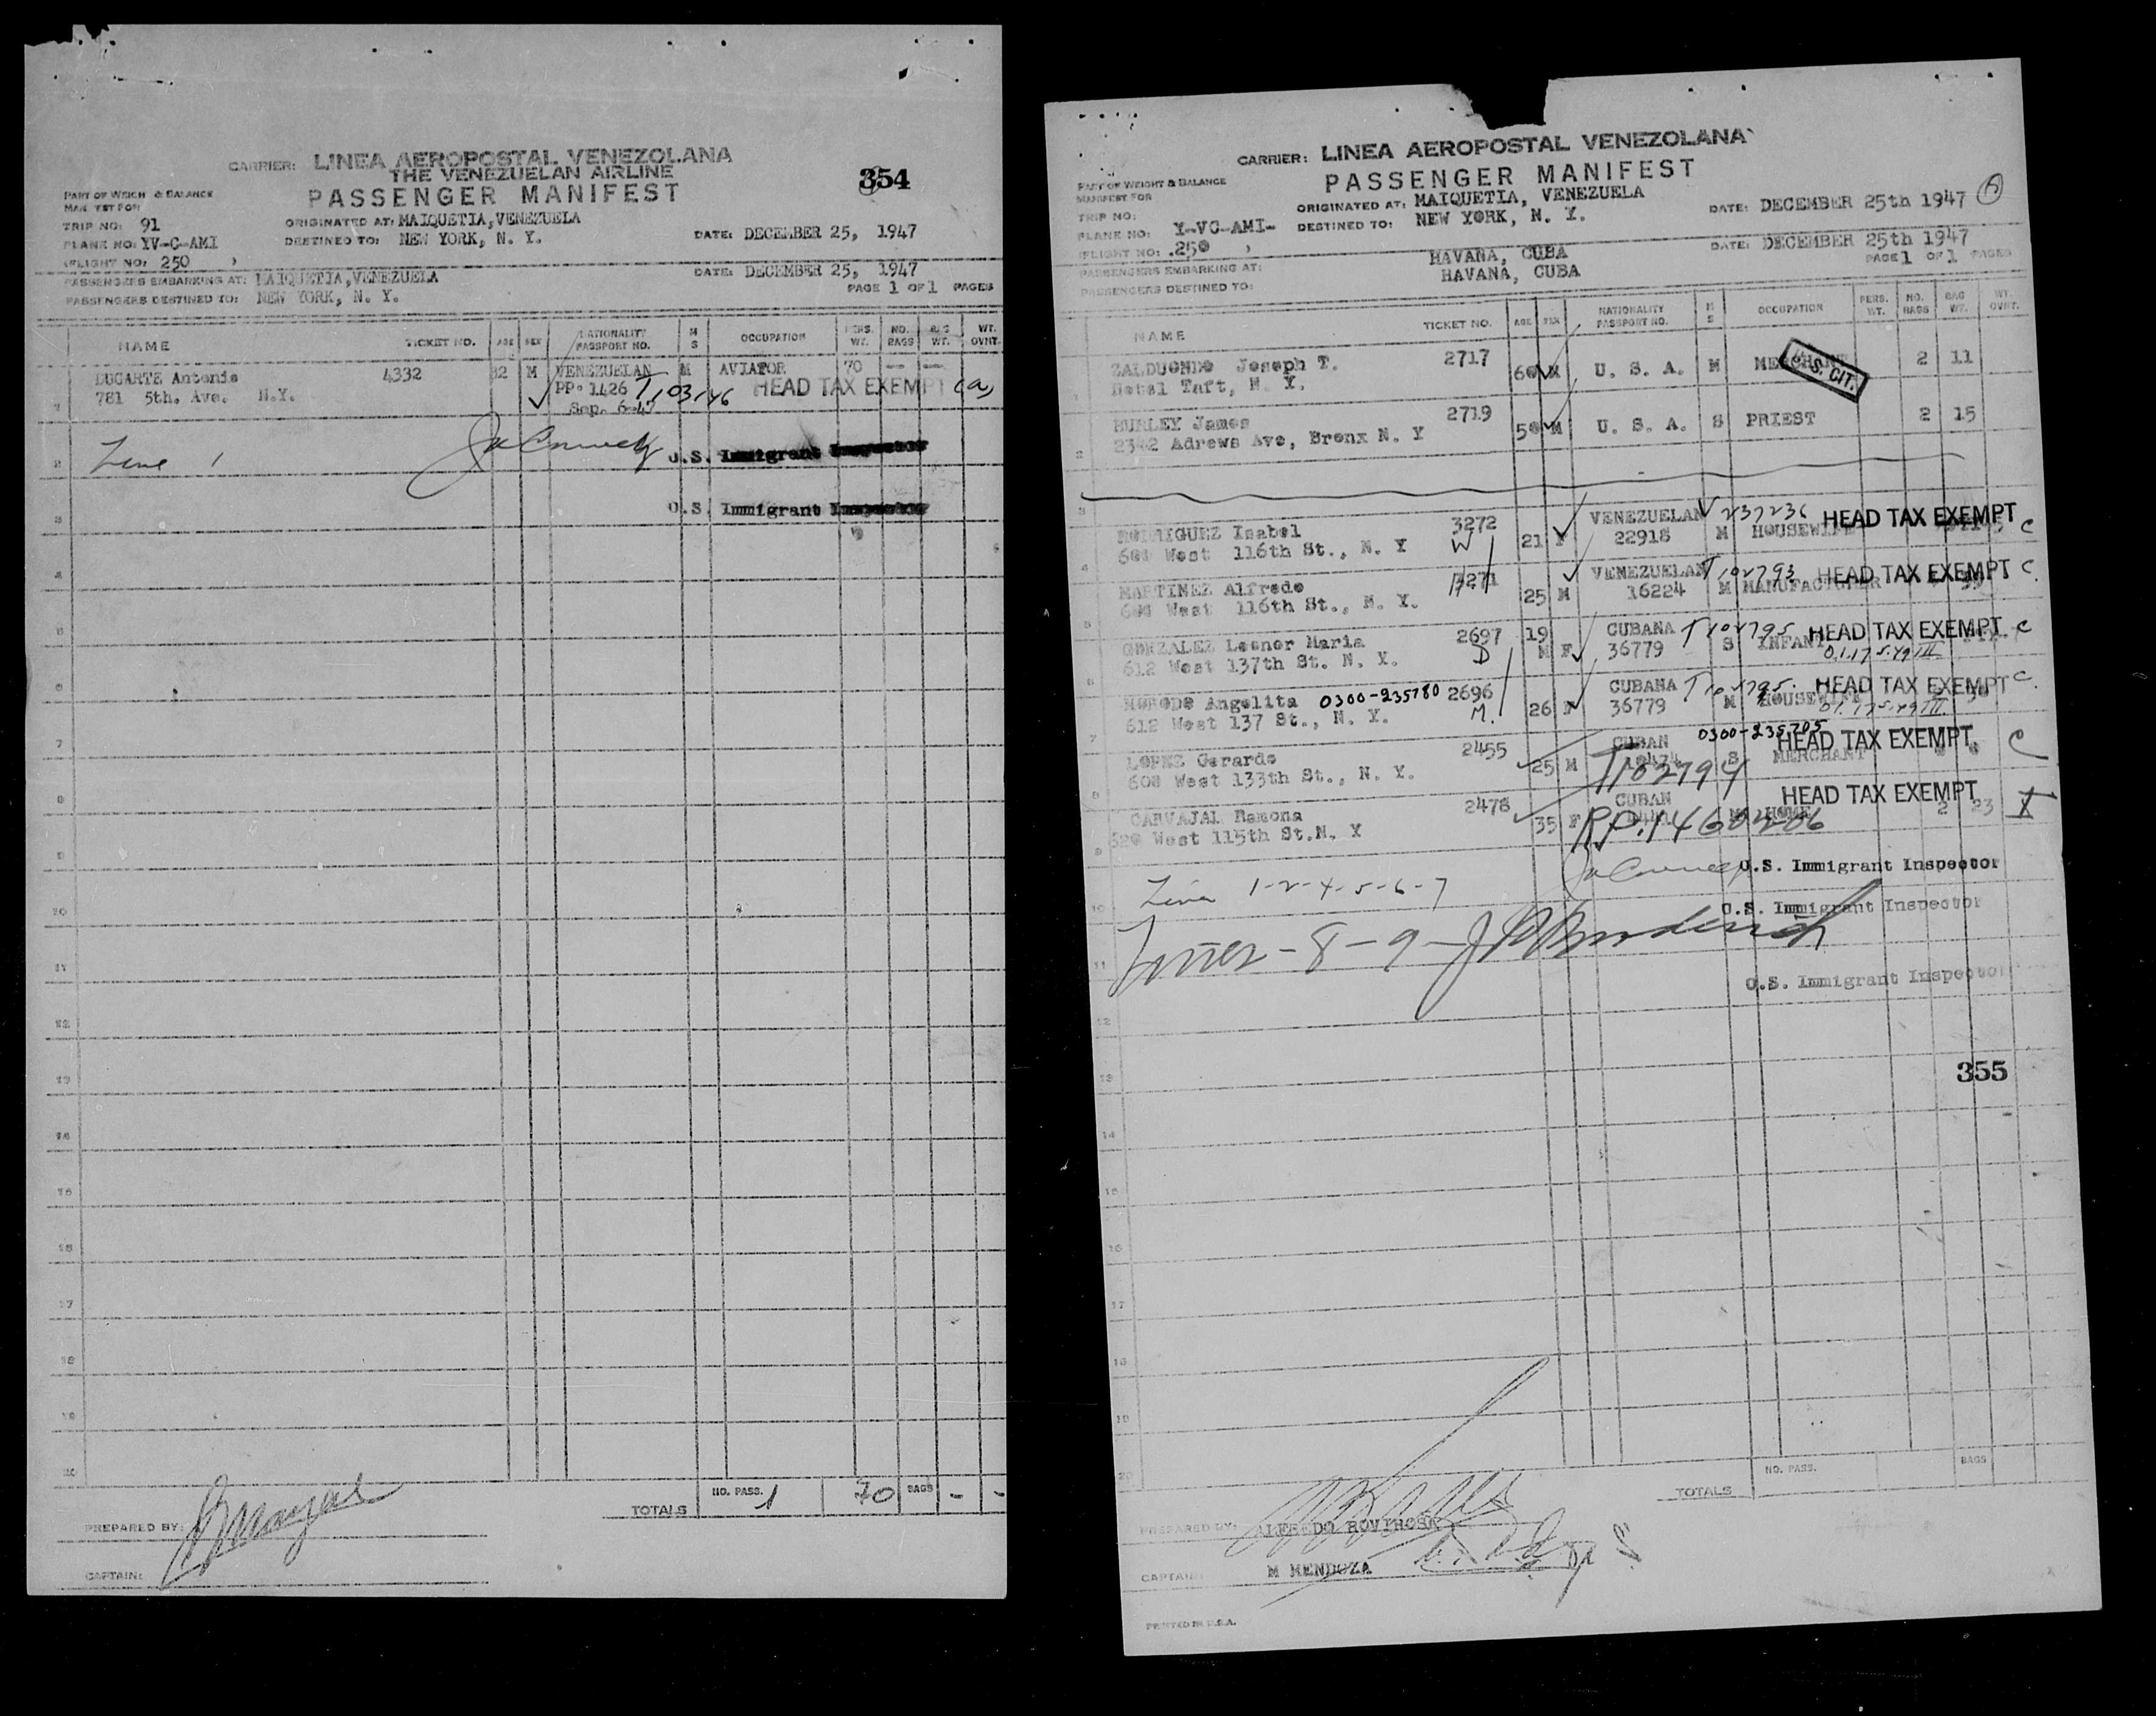 CARRIER: LINEA AEROPOSTAL VENEZOLANA
THE VENEZUELAN AIRLINE
354
PASSENGER MANIFEST
PART OF WEIGH & BALANCE
MAN EST FOR
TRIP NO: 91
ORIGINATED AT: MAIQUETIA, VENEZUELA
PLANE NO: YV-C-AMI
DESTINED TO: NEW YORK, N. Y.
DATE: DECEMBER 25, 1947
(FLIGHT NO: 250 )
PASSENGERS EMBARKING AT: MAIQUETIA, VENEZUELA
DATE: DECEMBER 25, 1947
PASSENGERS DESTINED TO: NEW YORK, N. Y.
PAGE 1 OF 1 PAGES
NAME TICKET NO. AGE SEX NATIONALITY PASSPORT NO. M S OCCUPATION PERS. WT. NO. BAGS BAG WT. WT. OVNT.
DUGARTE Antonio 4332 32 M VENEZUELAN M AVIATOR 70 — —
781 5th. Ave. N.Y. PP. 1426 HEAD TAX EXEMPT
1 Sep. 6-47
2 Line 1 U.S. Immigrant Inspector
3 U.S. Immigrant Inspector
4
5
6
7
8
9
10
11
12
13
14
15
16
17
18
19
20
TOTALS NO. PASS. 1 70 BAGS - -
PREPARED BY:
CAPTAIN:
CARRIER: LINEA AEROPOSTAL VENEZOLANA
PASSENGER MANIFEST
PART OF WEIGHT & BALANCE
MANIFEST FOR
ORIGINATED AT: MAIQUETIA, VENEZUELA
DATE: DECEMBER 25th 1947
TRIP NO:
PLANE NO: Y-VC-AMI-
DESTINED TO: NEW YORK, N. Y.
(FLIGHT NO: .250 )
HAVANA, CUBA
DATE: DECEMBER 25th 1947
PASSENGERS EMBARKING AT:
HAVANA, CUBA
PAGE 1 OF 1 PAGES
PASSENGERS DESTINED TO:
NAME TICKET NO. AGE SEX NATIONALITY PASSPORT NO. M S OCCUPATION PERS. WT. NO. BAGS BAG WT. WT. OVNT.
ZALDUONDO Joseph T. 2717 60 M U. S. A. M MERCHANT 2 11
Hotel Taft, N. Y. S. CIT.
1
BURLEY James 2719 50 M U. S. A. S PRIEST 2 15
2342 Adrews Ave, Bronx N. Y
2
3
RODRIGUEZ Isabel 3272 21 F VENEZUELAN 237236 HEAD TAX EXEMPT C
600 West 116th St., N. Y W 22918 M HOUSEWIFE
4
MARTINEZ Alfredo 3271 25 M VENEZUELAN T 102793 HEAD TAX EXEMPT C
600 West 116th St., N. Y. 16224 M MANUFACTURER
5
GONZALEZ Leonor Maria 2697 19 M F CUBANA T 102795 HEAD TAX EXEMPT C
612 West 137th St. N. Y. D 36779 S INFANT
6
Angelita 0300-235780 2696 26 F CUBANA T 102795 HEAD TAX EXEMPT C
612 West 137 St., N. Y. M. 36779 M HOUSEWIFE
7
LOPEZ Gerardo 2455 25 M CUBAN 0300-235705 HEAD TAX EXEMPT C
600 West 133th St., N. Y. T102794 S MERCHANT
8
CARVAJAL Ramona 2478 35 F CUBAN HEAD TAX EXEMPT
520 West 115th St.N. Y R.P.1460206 HOME 2 23
9
U.S. Immigrant Inspector
Line 1-2-4-5-6-7
10 U.S. Immigrant Inspector
Lines - 8 - 9 -
11 U.S. Immigrant Inspector
12
13 355
14
15
16
17
18
19
20
TOTALS NO. PASS. BAGS
PREPARED BY: ALFREDO ROVIROSA
CAPTAIN: M MENDOZA
PRINTED IN U.S.A.